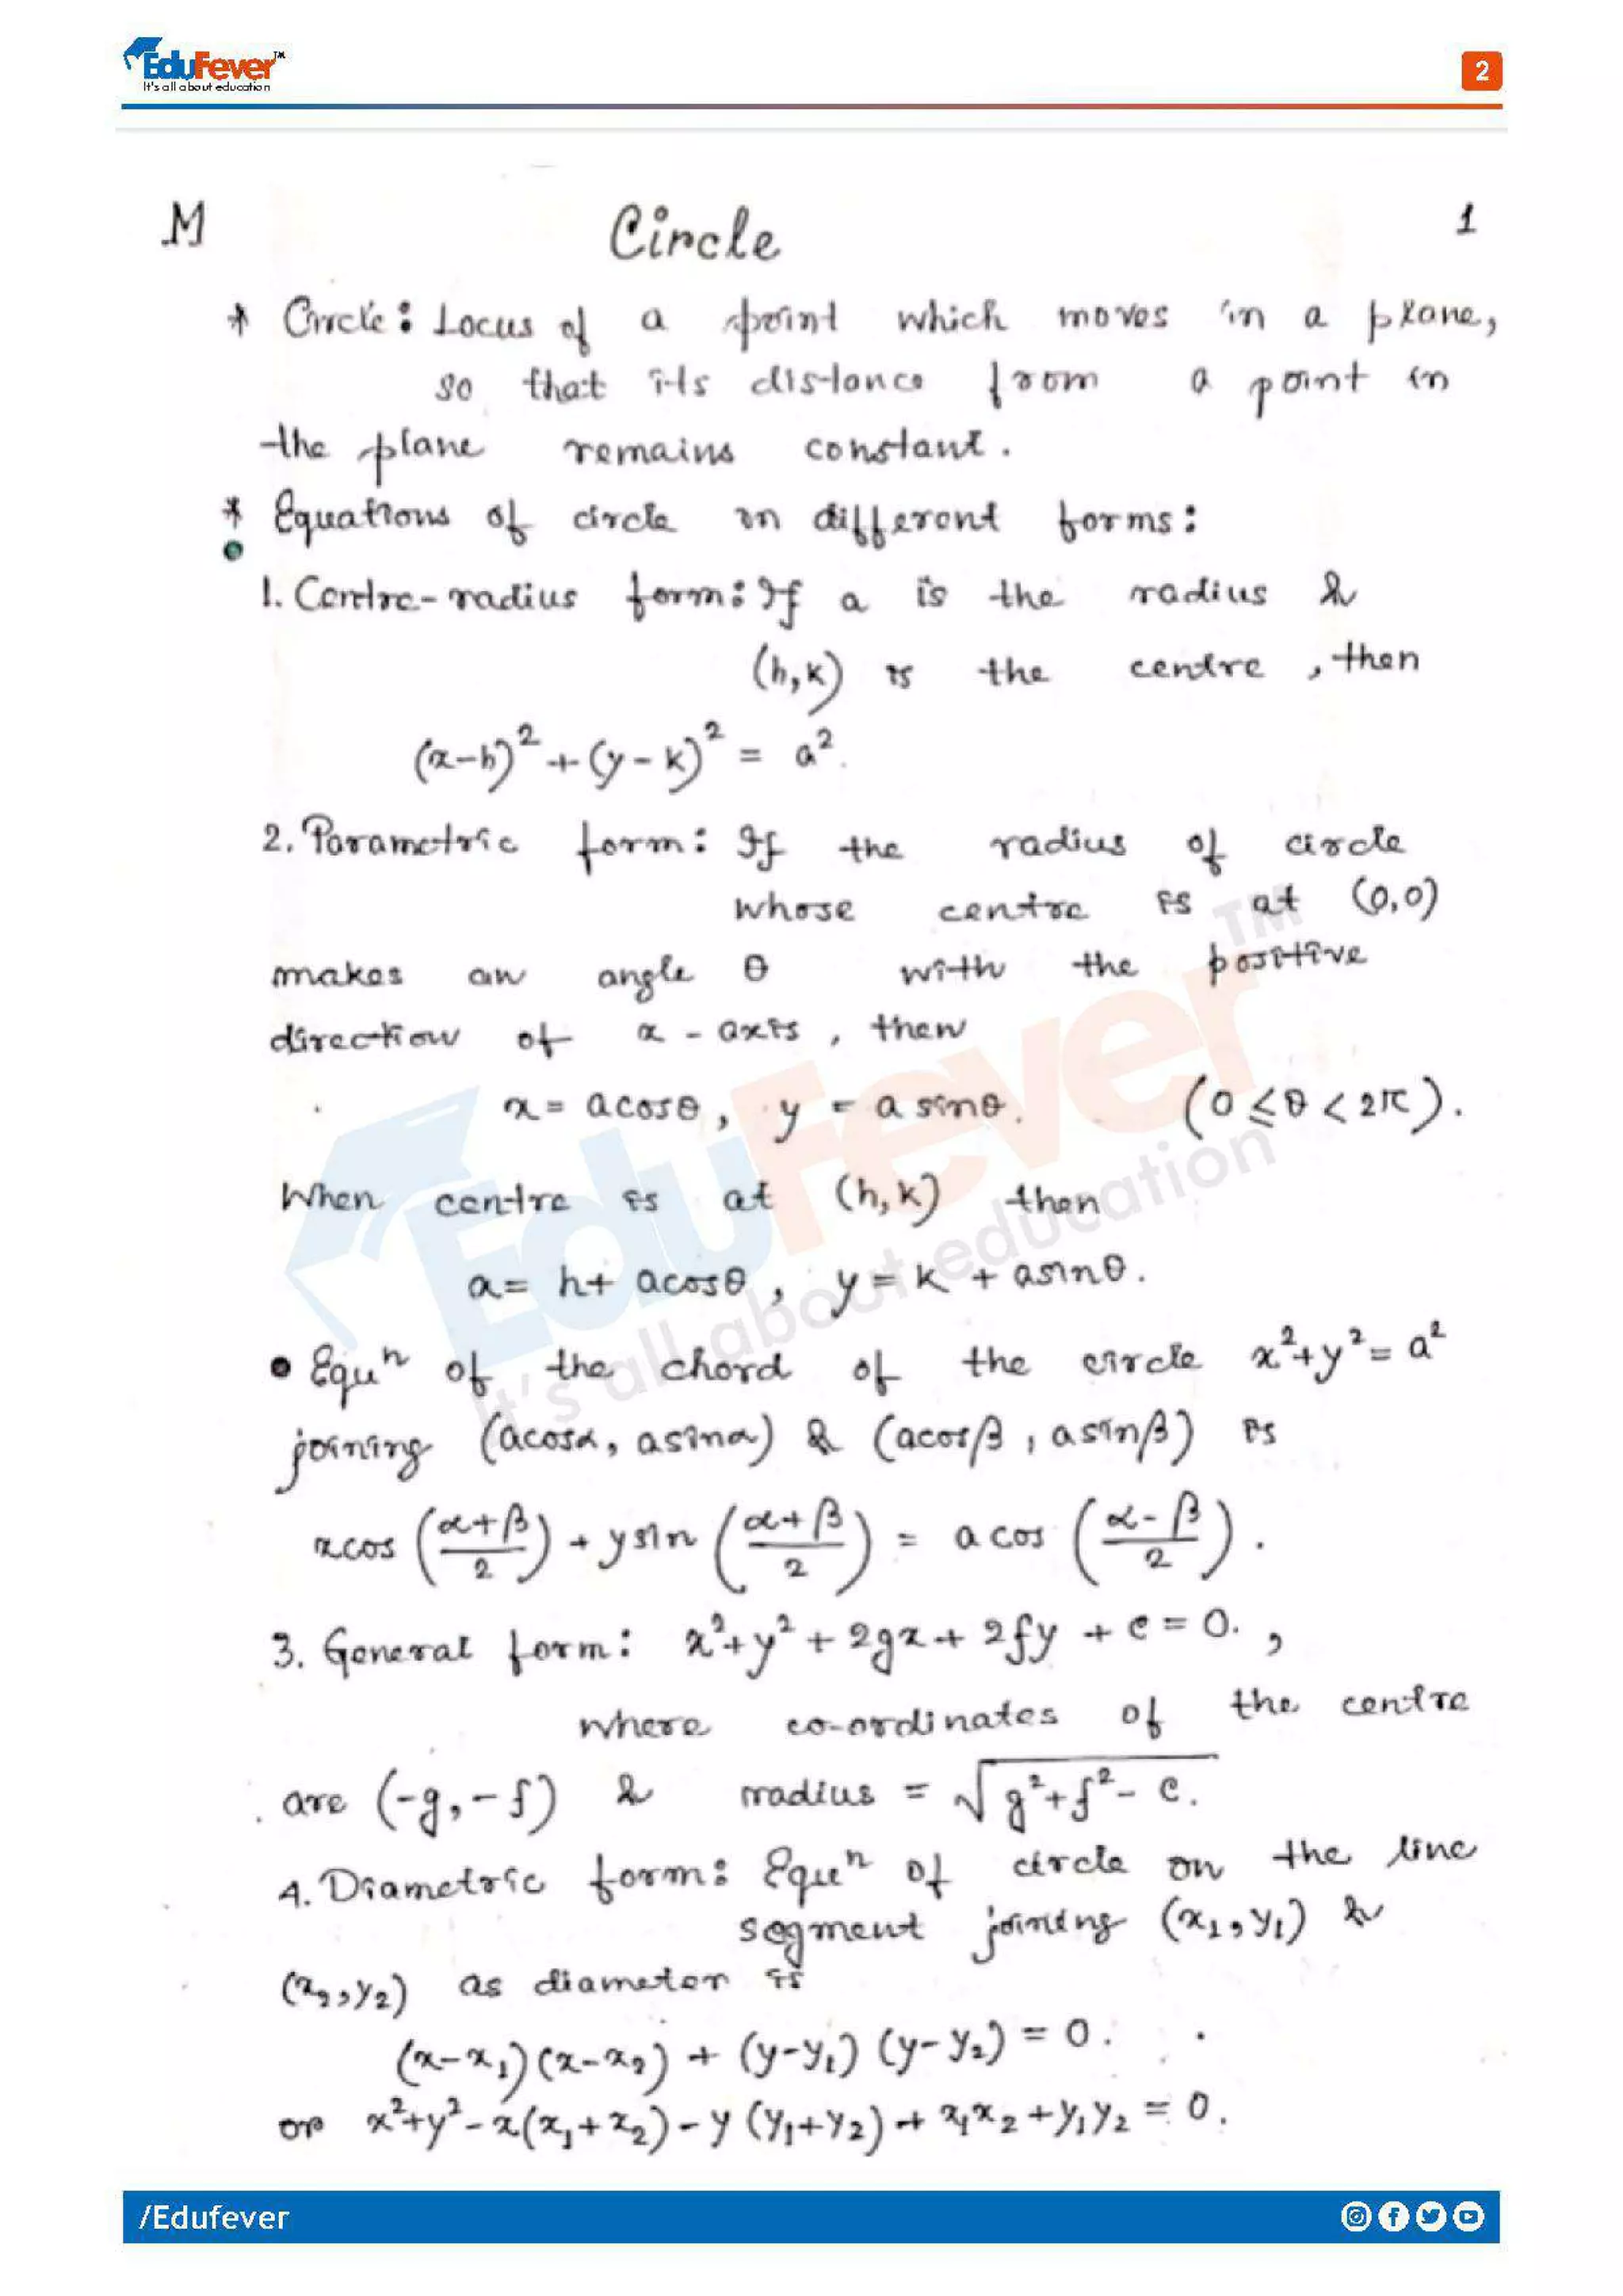 EduFever™
It's all about education
2
M Circle 1
* Circle: Locus of a point which moves in a plane,
so that its distance from a point in
the plane remains constant.
* Equations of circle in different forms:
1. Centre-radius form: If a is the radius &
(h,k) is the centre, then
(x-h)² + (y-k)² = a².
2. Parametric form: If the radius of circle
whose centre is at (0,0)
makes an angle θ with the positive
direction of x-axis, then
x = a cosθ, y = a sinθ. (0 ≤ θ < 2π).
When centre is at (h,k) then
x = h + a cosθ, y = k + a sinθ.
• Equⁿ of the chord of the circle x²+y² = a²
joining (a cosα, a sinα) & (a cosβ, a sinβ) is
x cos ((α+β)/2) + y sin ((α+β)/2) = a cos ((α-β)/2).
3. General form: x²+y² + 2gx + 2fy + c = 0.,
where co-ordinates of the centre
are (-g, -f) & radius = √(g²+f²-c).
4. Diametric form: Equⁿ of circle on the line
segment joining (x₁, y₁) &
(x₂, y₂) as diameter is
(x-x₁)(x-x₂) + (y-y₁)(y-y₂) = 0.
or x²+y²-x(x₁+x₂)-y(y₁+y₂)+x₁x₂+y₁y₂ = 0.
EduFever™
It's all about education
/Edufever